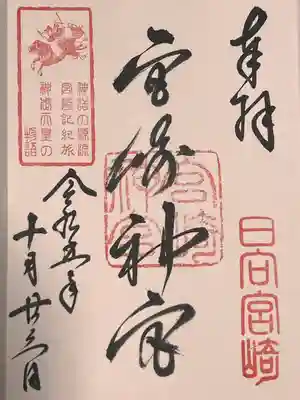 奉拝
日向宮崎
宮崎神宮
宮崎神宮
神話の源流
神武天皇の
物語
令和五年
十月廿三日